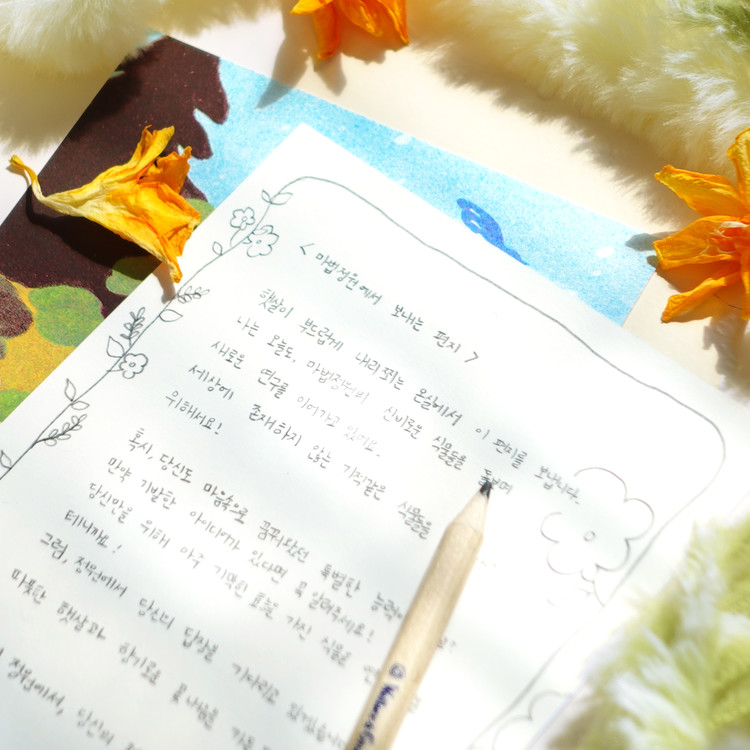 < 마법정원에서 보내는 편지 >
햇살이 부드럽게 내리쬐는 온실에서 이 편지를 보냅니다.
나는 오늘도, 마법정원의 신비로운 식물들을 돌보며
새로운 연구를 이어가고 있어요.
세상에 존재하지 않는 기적같은 식물들을
위해서요!
혹시, 당신도 마음속으로 꿈꿔왔던 특별한 능력이
만약 기발한 아이디어가 있다면 꼭 알려주세요!
당신만을 위해 아주 기막힌 효능을 가진 식물을
테니까요!
그럼, 정원에서 당신의 답장을 기다리고 있겠습니다
따뜻한 햇살과 향기로운 꽃내음을 가득
정원에서, 당신의